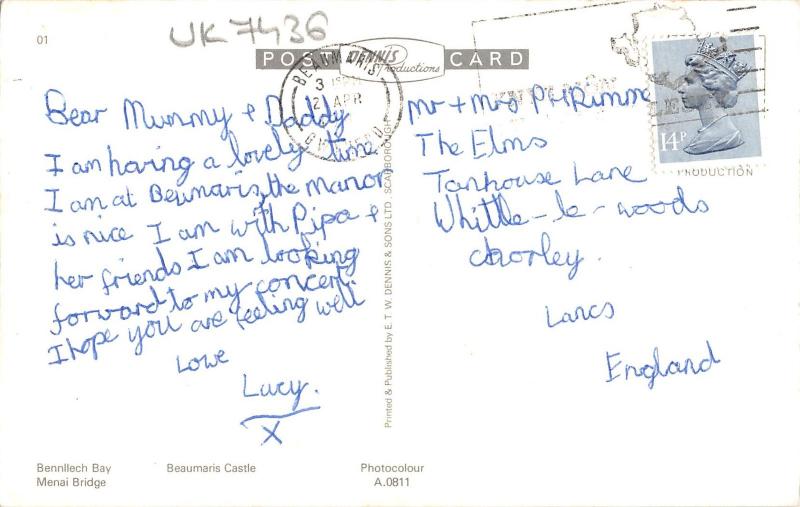 01
UK7436
POST CARD
DENNIS
Productions
BEAUMARIS
3
2 APR
Dear Mummy + Daddy
I am having a lovely time
I am at Beumaris, the manor
is nice I am with Pipa +
her friends I am looking
forward to my concert
I hope you are feeling well
Lowe
Lucy.
X
Mr + Mrs P H Rimme
The Elms
Tanhouse Lane
Whittle-le-woods
chorley.
Lancs
England
14P
PRODUCTION
Printed & Published by E. T. W. DENNIS & SONS LTD. SCARBOROUGH
Bennllech Bay Beaumaris Castle
Menai Bridge
Photocolour
A.0811